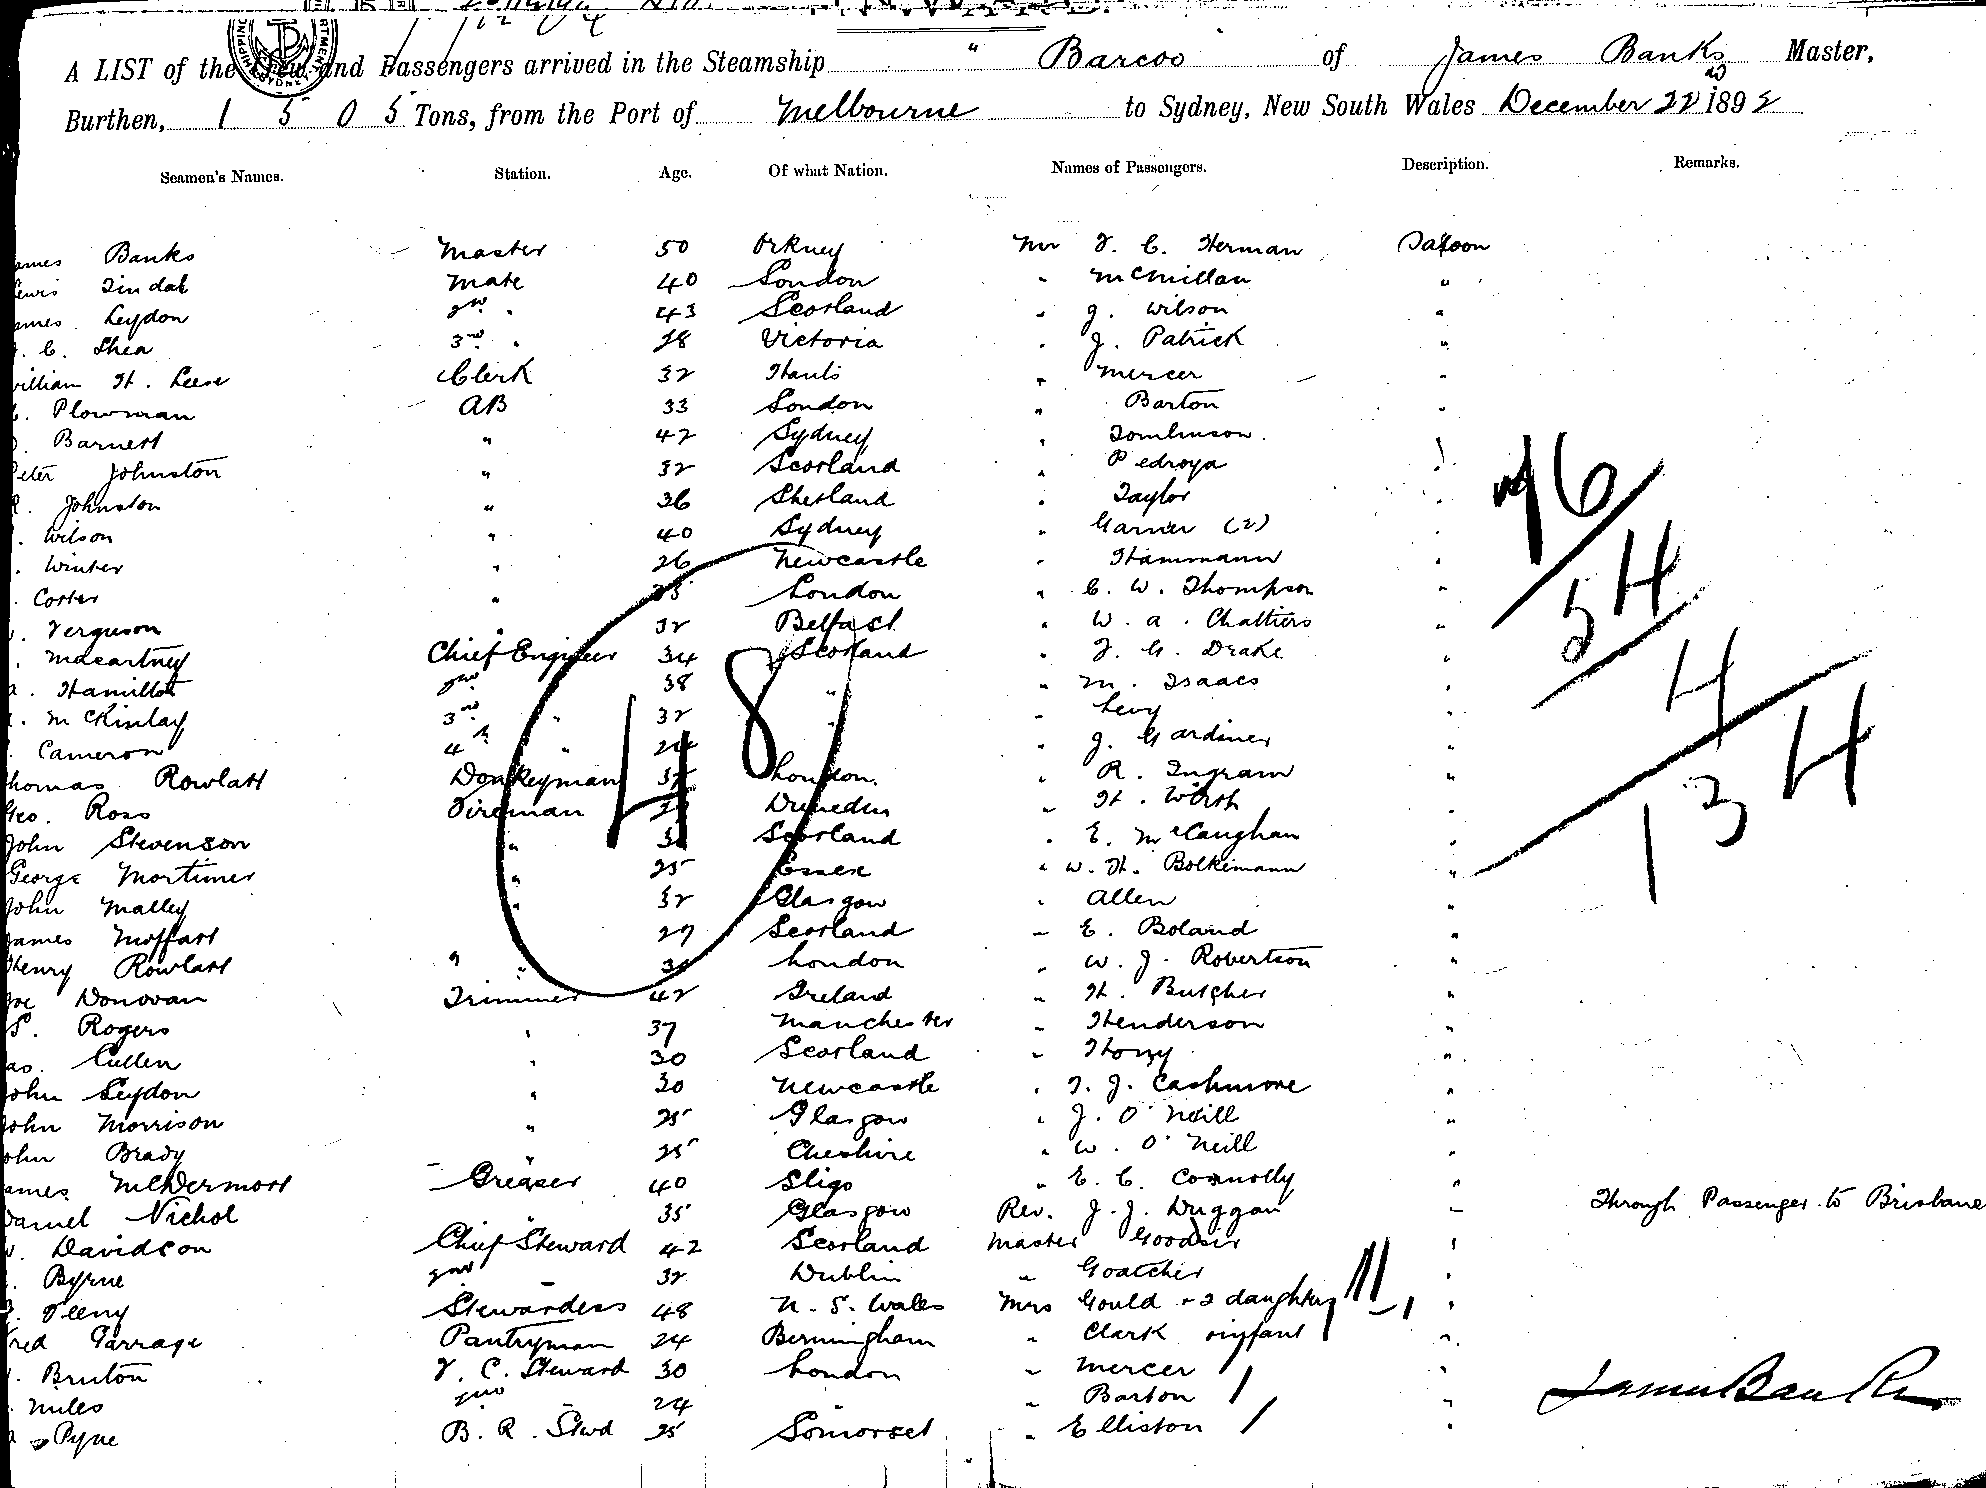 A LIST of the Crew and Passengers arrived in the Steamship " Barcoo of James Banks Master,
Burthen, 1505 Tons, from the Port of Melbourne to Sydney, New South Wales December 22nd 1892
Seamen's Names. Station. Age. Of what Nation. Names of Passengers. Description. Remarks.
ames Banks Master 50 Orkney Mr F. C. Herman Saloon
ewis Tindal Mate 40 London " McMillan "
ames Leydon 2nd " 43 Scotland " J. Wilson "
. C. Shea 3rd " 28 Victoria " J. Patrick "
william H. Leese Clerk 32 Hants " Mercer "
. Plowman AB 33 London " Barton "
. Barnett " 42 Sydney " Tomlinson "
Peter Johnston " 32 Scotland " Pedroya "
R. Johnston " 36 Shetland " Taylor "
. Wilson " 40 Sydney " Garner (2) "
. Winter " 26 Newcastle " Hammann "
. Coster " London " C. W. Thompson "
. Ferguson " 32 Belfast " W. A. Chattiers "
. Macartney Chief Engineer 34 Scotland " F. G. Drake "
. Hamilton 2nd 38 " " M. Isaacs "
. McKinlay 3rd " 32 " " Levy "
. Cameron 4th " 24 " J. Gardiner "
homas Rowlatt Donkeyman London " R. Ingram "
Geo. Ross Fireman Dunedin " H. Wirth "
John Stevenson " Scotland " E. McCaughan "
George Mortimer " 25 Essex " W. H. Bolkimann "
John Malley " 32 Glasgow " Allen "
James Moffatt 27 Scotland " E. Boland "
Henry Rowlatt " " London " W. J. Robertson "
Joe Donovan Trimmer 42 Ireland " H. Butcher "
S. Rogers " 37 Manchester " Henderson "
as. Cullen " 30 Scotland " Hory "
John Leydon " 30 Newcastle " T. J. Cashmore "
John Morrison " 25 Glasgow " J. O'Neill "
ohn Brady " 25 Cheshire " W. O'Neill "
ames McDermott Greaser 40 Sligo " E. C. Connolly "
Daniel Nichol 35 Glasgow Rev. J. J. Duggan " Through Passenger to Brisbane
. Davidson Chief Steward 42 Scotland Master Goodsir "
. Byrne 2nd " 32 Dublin " Goatcher "
. Feeny Stewardess 48 N. S. Wales Mrs Gould & 2 daughters "
red Garrage Pantryman 24 Birmingham " Clark & infant "
. Bruton F. C. Steward 30 London " Mercer "
. Miles 2nd 24 " Barton "
. Pyne B. R. Stwd 25 Somerset " Elliston "
48
76
54
4
134
James Banks